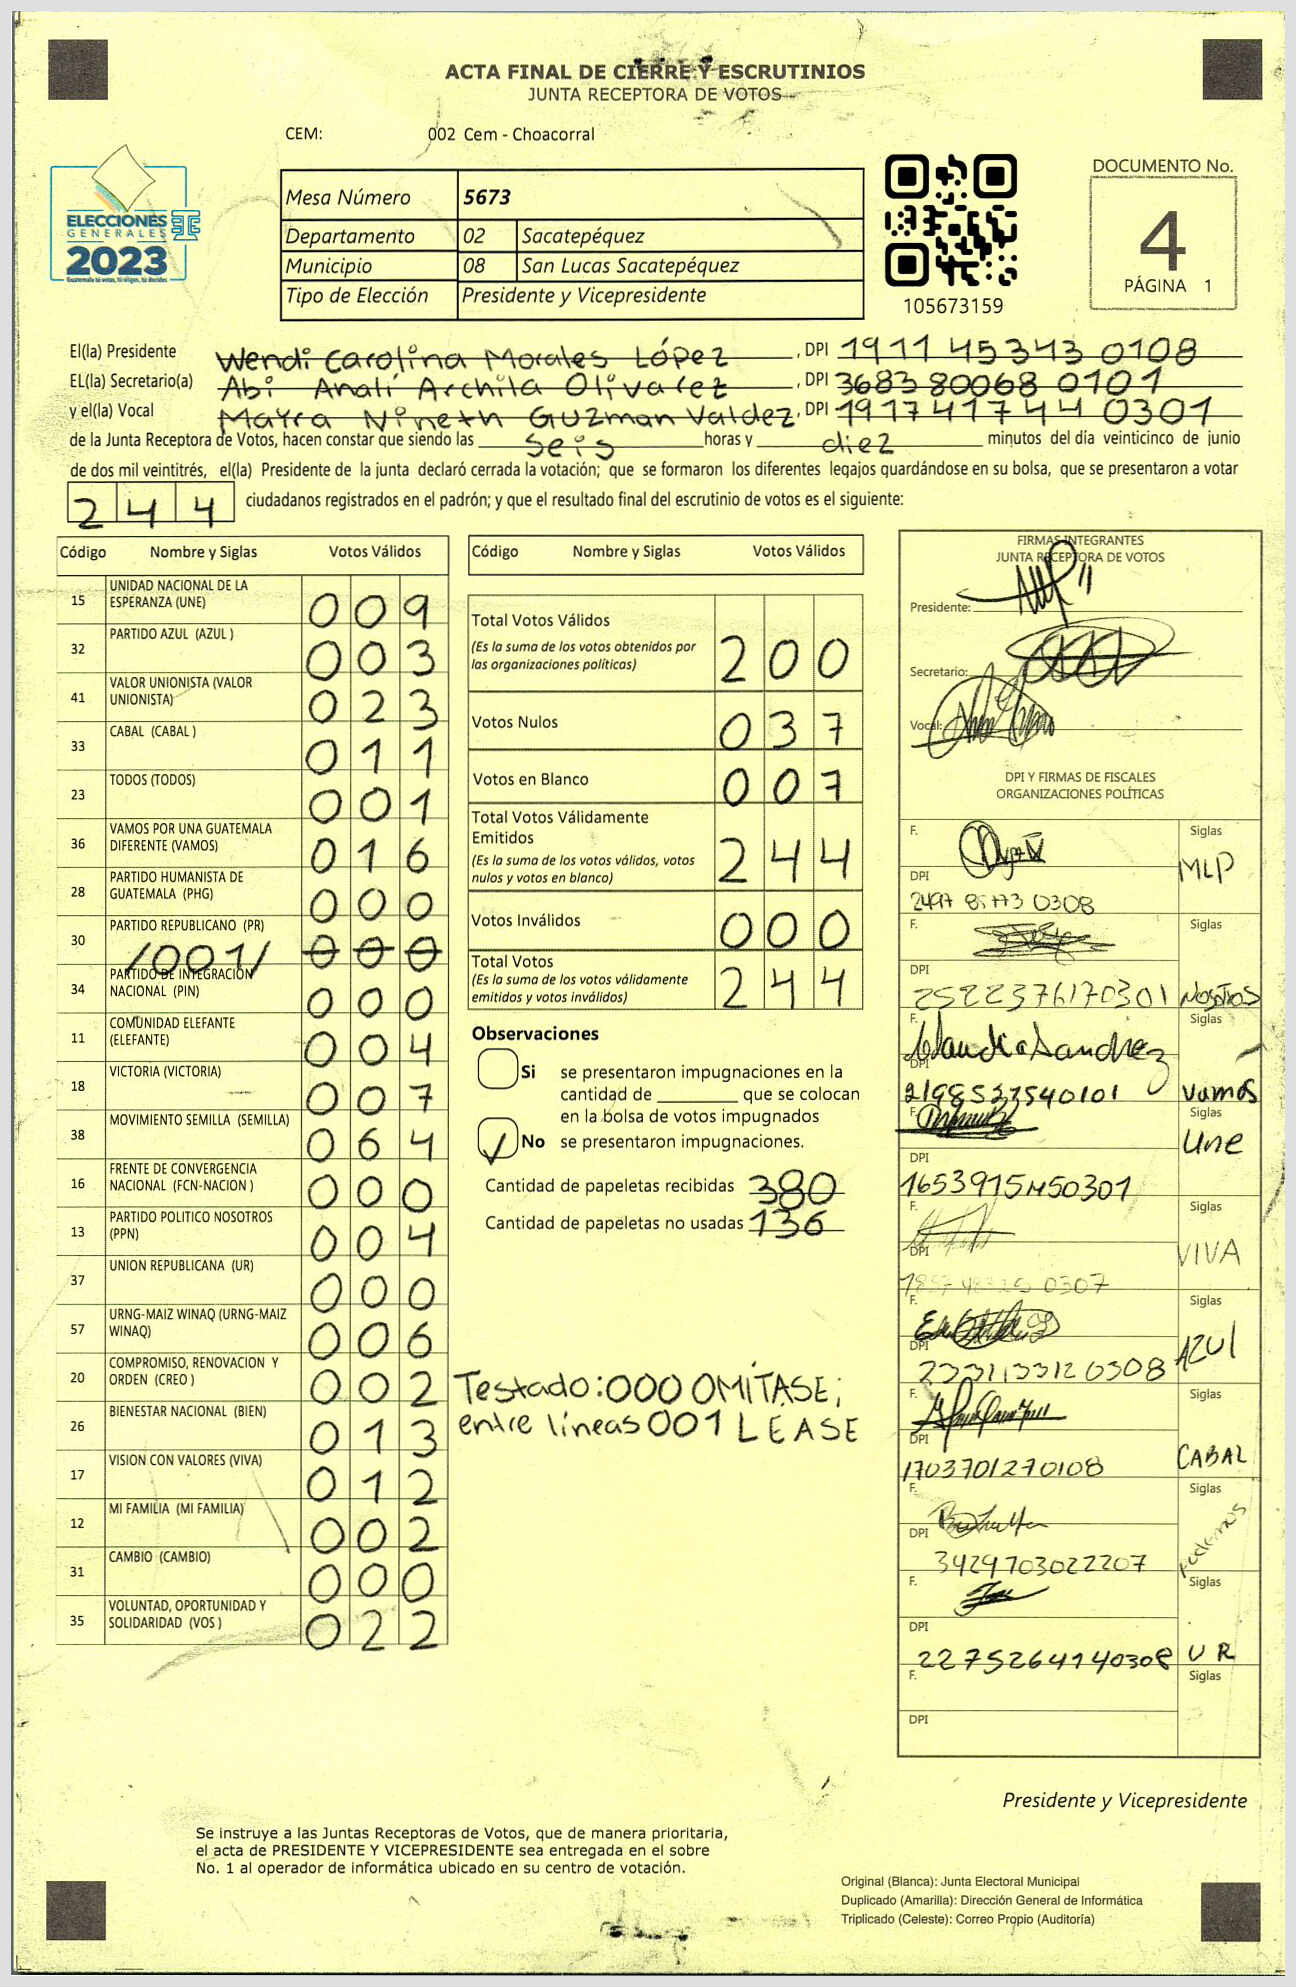 ACTA FINAL DE CIERRE Y ESCRUTINIOS
JUNTA RECEPTORA DE VOTOS
CEM: 002 Cem - Choacorral
ELECCIONES
GENERALES
2023
Guatemala tú votas, tú eliges, tú decides
Mesa Número 5673
Departamento 02 Sacatepéquez
Municipio 08 San Lucas Sacatepéquez
Tipo de Elección Presidente y Vicepresidente
105673159
DOCUMENTO No.
4
PÁGINA 1
El(la) Presidente Wendi Carolina Morales López, DPI 1911 45343 0108
EL(la) Secretario(a) Abi Analí Archila Olivarez, DPI 3683 80068 0101
y el(la) Vocal Mayra Nineth Guzman Valdez, DPI 1917 41744 0301
de la Junta Receptora de Votos, hacen constar que siendo las seis horas y diez minutos del día veinticinco de junio
de dos mil veintitrés, el(la) Presidente de la junta declaró cerrada la votación; que se formaron los diferentes legajos guardándose en su bolsa, que se presentaron a votar
244 ciudadanos registrados en el padrón; y que el resultado final del escrutinio de votos es el siguiente:
Código Nombre y Siglas Votos Válidos
15 UNIDAD NACIONAL DE LA ESPERANZA (UNE) 009
32 PARTIDO AZUL (AZUL ) 003
41 VALOR UNIONISTA (VALOR UNIONISTA) 023
33 CABAL (CABAL ) 011
23 TODOS (TODOS) 001
36 VAMOS POR UNA GUATEMALA DIFERENTE (VAMOS) 016
28 PARTIDO HUMANISTA DE GUATEMALA (PHG) 000
30 PARTIDO REPUBLICANO (PR) /001/ 000
34 PARTIDO DE INTEGRACIÓN NACIONAL (PIN) 000
11 COMUNIDAD ELEFANTE (ELEFANTE) 004
18 VICTORIA (VICTORIA) 007
38 MOVIMIENTO SEMILLA (SEMILLA) 064
16 FRENTE DE CONVERGENCIA NACIONAL (FCN-NACION ) 000
13 PARTIDO POLITICO NOSOTROS (PPN) 004
37 UNION REPUBLICANA (UR) 000
57 URNG-MAIZ WINAQ (URNG-MAIZ WINAQ) 006
20 COMPROMISO, RENOVACION Y ORDEN (CREO ) 002
26 BIENESTAR NACIONAL (BIEN) 013
17 VISION CON VALORES (VIVA) 012
12 MI FAMILIA (MI FAMILIA) 002
31 CAMBIO (CAMBIO) 000
35 VOLUNTAD, OPORTUNIDAD Y SOLIDARIDAD (VOS ) 022
Código Nombre y Siglas Votos Válidos
Total Votos Válidos 200
(Es la suma de los votos obtenidos por
las organizaciones políticas)
Votos Nulos 037
Votos en Blanco 007
Total Votos Válidamente
Emitidos 244
(Es la suma de los votos válidos, votos
nulos y votos en blanco)
Votos Inválidos 000
Total Votos 244
(Es la suma de los votos válidamente
emitidos y votos inválidos)
Observaciones
Si se presentaron impugnaciones en la
cantidad de ________ que se colocan
en la bolsa de votos impugnados
✓ No se presentaron impugnaciones.
Cantidad de papeletas recibidas 380
Cantidad de papeletas no usadas 136
Testado:000 OMITASE;
entre líneas 001 LEASE
FIRMAS INTEGRANTES
JUNTA RECEPTORA DE VOTOS
Presidente:
Secretario:
Vocal:
DPI Y FIRMAS DE FISCALES
ORGANIZACIONES POLÍTICAS
F. Siglas
MLP
DPI
0308
F. Siglas
DPI
2522376170301 NOSOTROS
F. Siglas
Claudia Sanchez
DPI
2198527540101 Vamos
F. Siglas
Une
DPI
F. Siglas
DPI VIVA
0307
F. Siglas
DPI AZUl
2331133120308
F. Siglas
DPI
1703701270108 CABAL
F. Siglas
DPI Podemos
3429703022207
F. Siglas
DPI
2275264140308 UR
F. Siglas
DPI
Presidente y Vicepresidente
Se instruye a las Juntas Receptoras de Votos, que de manera prioritaria,
el acta de PRESIDENTE Y VICEPRESIDENTE sea entregada en el sobre
No. 1 al operador de informática ubicado en su centro de votación.
Original (Blanca): Junta Electoral Municipal
Duplicado (Amarilla): Dirección General de Informática
Triplicado (Celeste): Correo Propio (Auditoría)